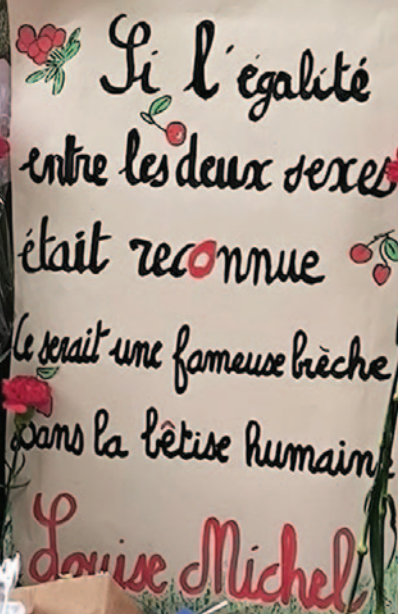 Si l'égalité
entre les deux sexes
était reconnue
Ce serait une fameuse brèche
Dans la bêtise humaine
Louise Michel